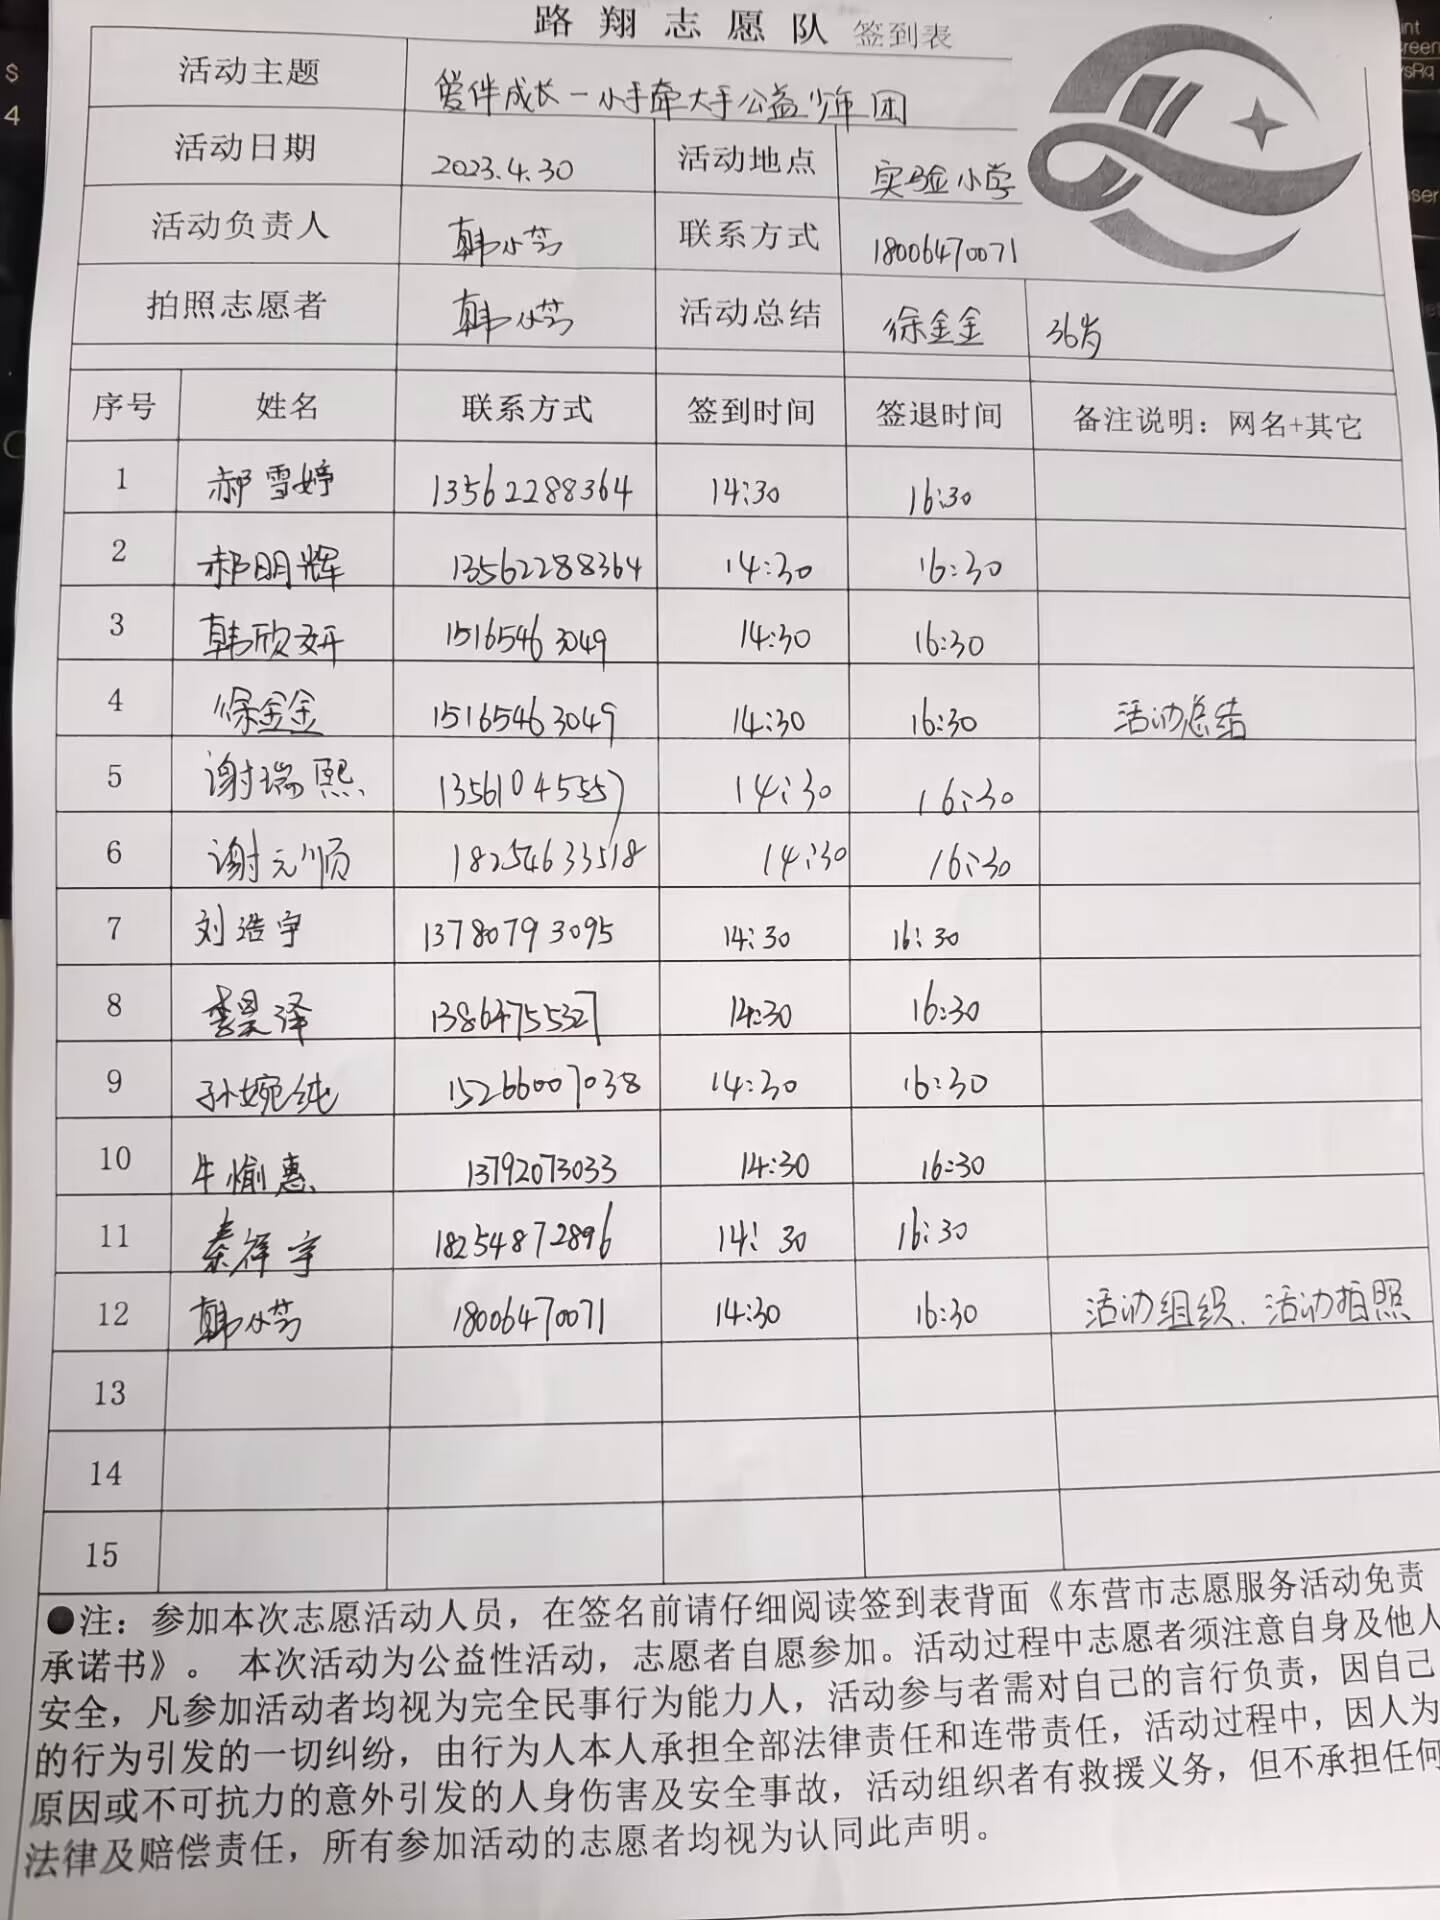 路翔志愿队 签到表
活动主题 爱伴成长-小手牵大手公益少年团
活动日期 2023.4.30 活动地点 实验小学
活动负责人 韩小芳 联系方式 18006470071
拍照志愿者 韩小芳 活动总结 徐金金 36岁
序号 姓名 联系方式 签到时间 签退时间 备注说明：网名+其它
1 郝雪婷 13562288364 14:30 16:30
2 郝明辉 13562288364 14:30 16:30
3 韩欣妍 15165463049 14:30 16:30
4 徐金金 15165463049 14:30 16:30 活动总结
5 谢瑞熙 13561045557 14:30 16:30
6 谢元顺 18254633518 14:30 16:30
7 刘浩宇 13780793095 14:30 16:30
8 李昊泽 13864755327 14:30 16:30
9 孙婉纯 15266007038 14:30 16:30
10 牛愉惠 13792073033 14:30 16:30
11 秦祥宇 18254872896 14:30 16:30
12 韩小芳 18006470071 14:30 16:30 活动组织、活动拍照
13
14
15
●注：参加本次志愿活动人员，在签名前请仔细阅读签到表背面《东营市志愿服务活动免责
承诺书》。 本次活动为公益性活动，志愿者自愿参加。活动过程中志愿者须注意自身及他人
安全，凡参加活动者均视为完全民事行为能力人，活动参与者需对自己的言行负责，因自己
的行为引发的一切纠纷，由行为人本人承担全部法律责任和连带责任，活动过程中，因人为
原因或不可抗力的意外引发的人身伤害及安全事故，活动组织者有救援义务，但不承担任何
法律及赔偿责任，所有参加活动的志愿者均视为认同此声明。
$
4